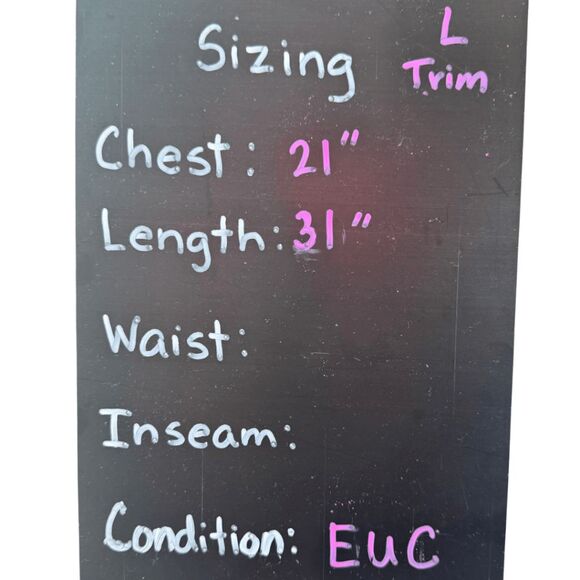 Sizing L
Trim
Chest: 21"
Length: 31"
Waist:
Inseam:
Condition: EUC